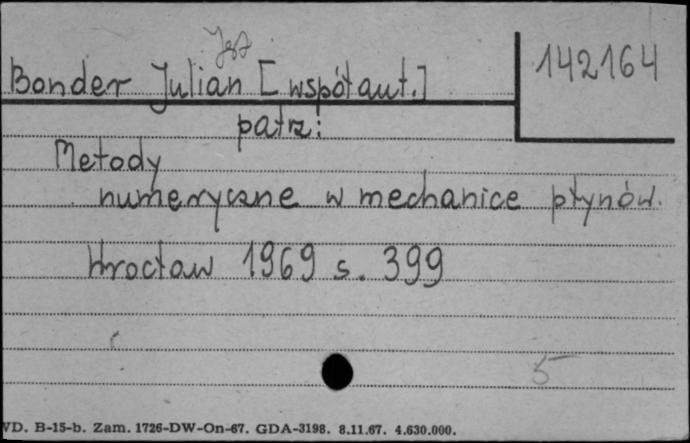 142164
Bonder Julian [współaut.]
patrz:
Metody
numeryczne w mechanice płynów.
Wrocław 1969 s. 399
5
VD. B-15-b. Zam. 1726-DW-On-67. GDA-3198. 8.11.67. 4.630.000.